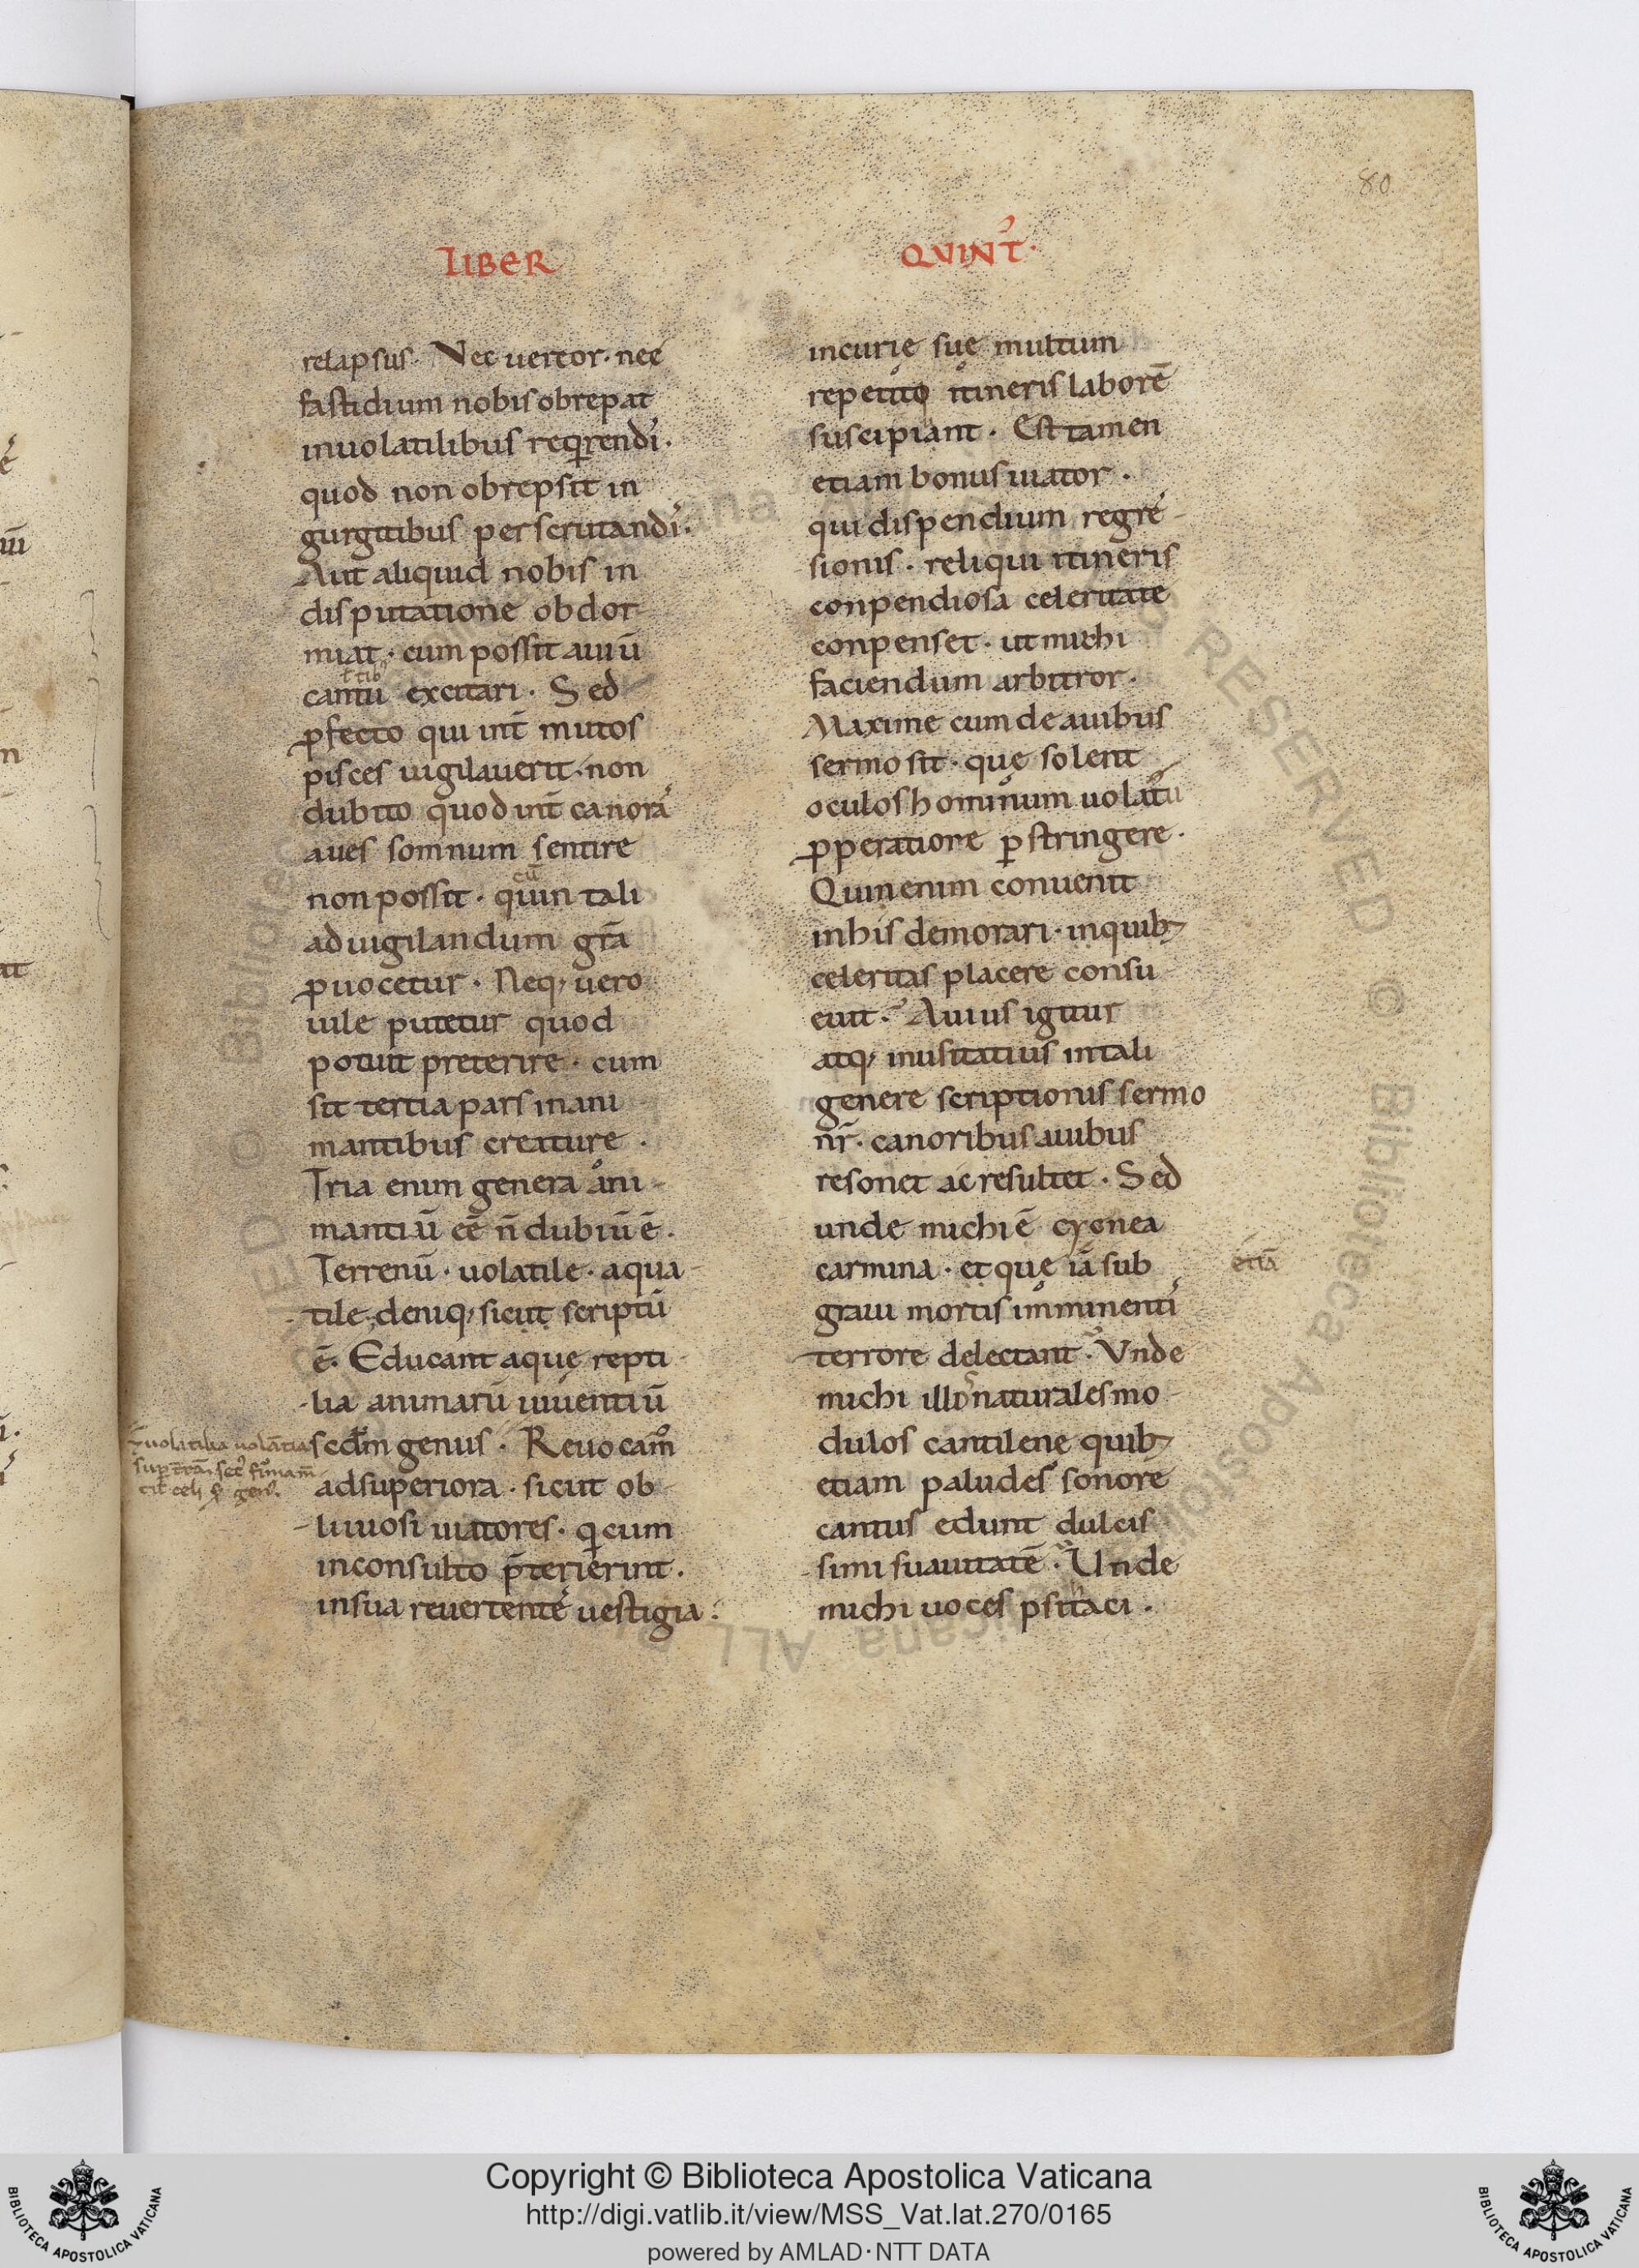 80
LIBER
QVINT᾽.
relapsus. Nec uereor. nec
fastidium nobis obrepat
in uolatilibus reqrendi᾽.
quod non obrepsit in
gurgitibus perscrutandi᾽.
Aut aliquid nobis in
disputatione obdor
miat. cum possit auiū
cantu excitari. Sed
ꝓfecto qui int̄ mutos
pisces uigilauerit. non
dubito quod int̄ canora᾽
aues somnum sentire
non possit. quin tali
ad uigilandum grā
ꝓuocetur. Neq; uero
uile putetur quod
potuit preterire. cum
sit tertia pars in ani
mantibus creature.
Tria enim genera ani
mantiū eē n̄ dubiū ē.
Terrenū. uolatile. aqua
tile. deniq; sicut scriptū
ē. Educant aquę repti
lia animarū uiuentiū
scd̄m genus. Reuocam᾽
ad superiora. sicut ob
liuiosi uiatores. qi cum
inconsulto p̄terierint.
in sua reuertente᾽ uestigia.
incurię suę multum
repetito itineris laborē
suscipiant. Est tamen
etiam bonus uiator.
qui dispendium regre᾽
sionis. reliqui itineris
conpendiosa celeritate
conpenset. ut michi
faciendum arbitror.
Maxime cum de auibus
sermo sit. que solent
oculos hominum uolatu
ꝓperatiore ꝑstringere.
Quin enim conuenit
in his demorari. in quib;
celeritas placere consu
euit. Auius igitur
atq; inusitatius in tali
genere scriptionis sermo
nr̄. canoribus auibus
resonet ac resultet. Sed
unde michi ē cygnea
carmina. et que iā sub
etiā
graui mortis imminenti᾽
terrore delectant. Vnde
michi illi᾽ naturales mo
dulos cantilene quib;
etiam paludes sonore
cantus edunt dulcis
simi suauitatē. Unde
michi uoces psitaci.
Copyright © Biblioteca Apostolica Vaticana
http://digi.vatlib.it/view/MSS_Vat.lat.270/0165
powered by AMLAD·NTT DATA
BIBLIOTECA APOSTOLICA VATICANA
BIBLIOTECA APOSTOLICA VATICANA